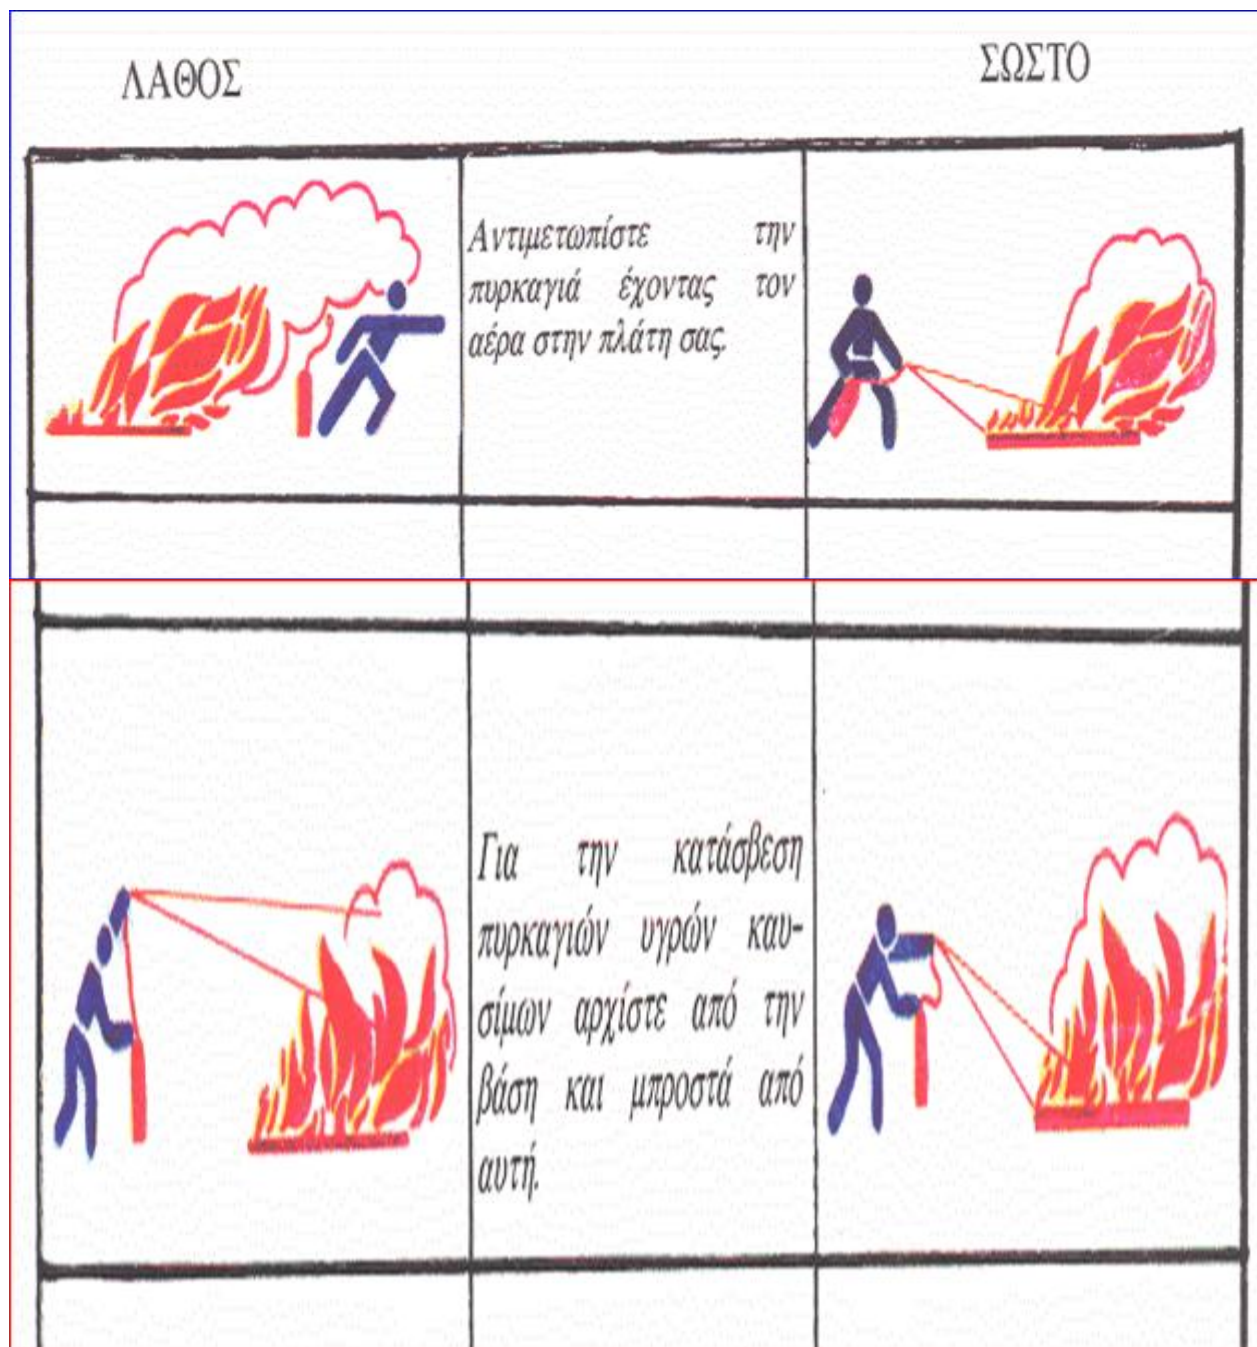 ΛΑΘΟΣ
ΣΩΣΤΟ
Αντιμετωπίστε την
πυρκαγιά έχοντας τον
αέρα στην πλάτη σας.
Για την κατάσβεση
πυρκαγιών υγρών καυ-
σίμων αρχίστε από την
βάση και μπροστά από
αυτή.